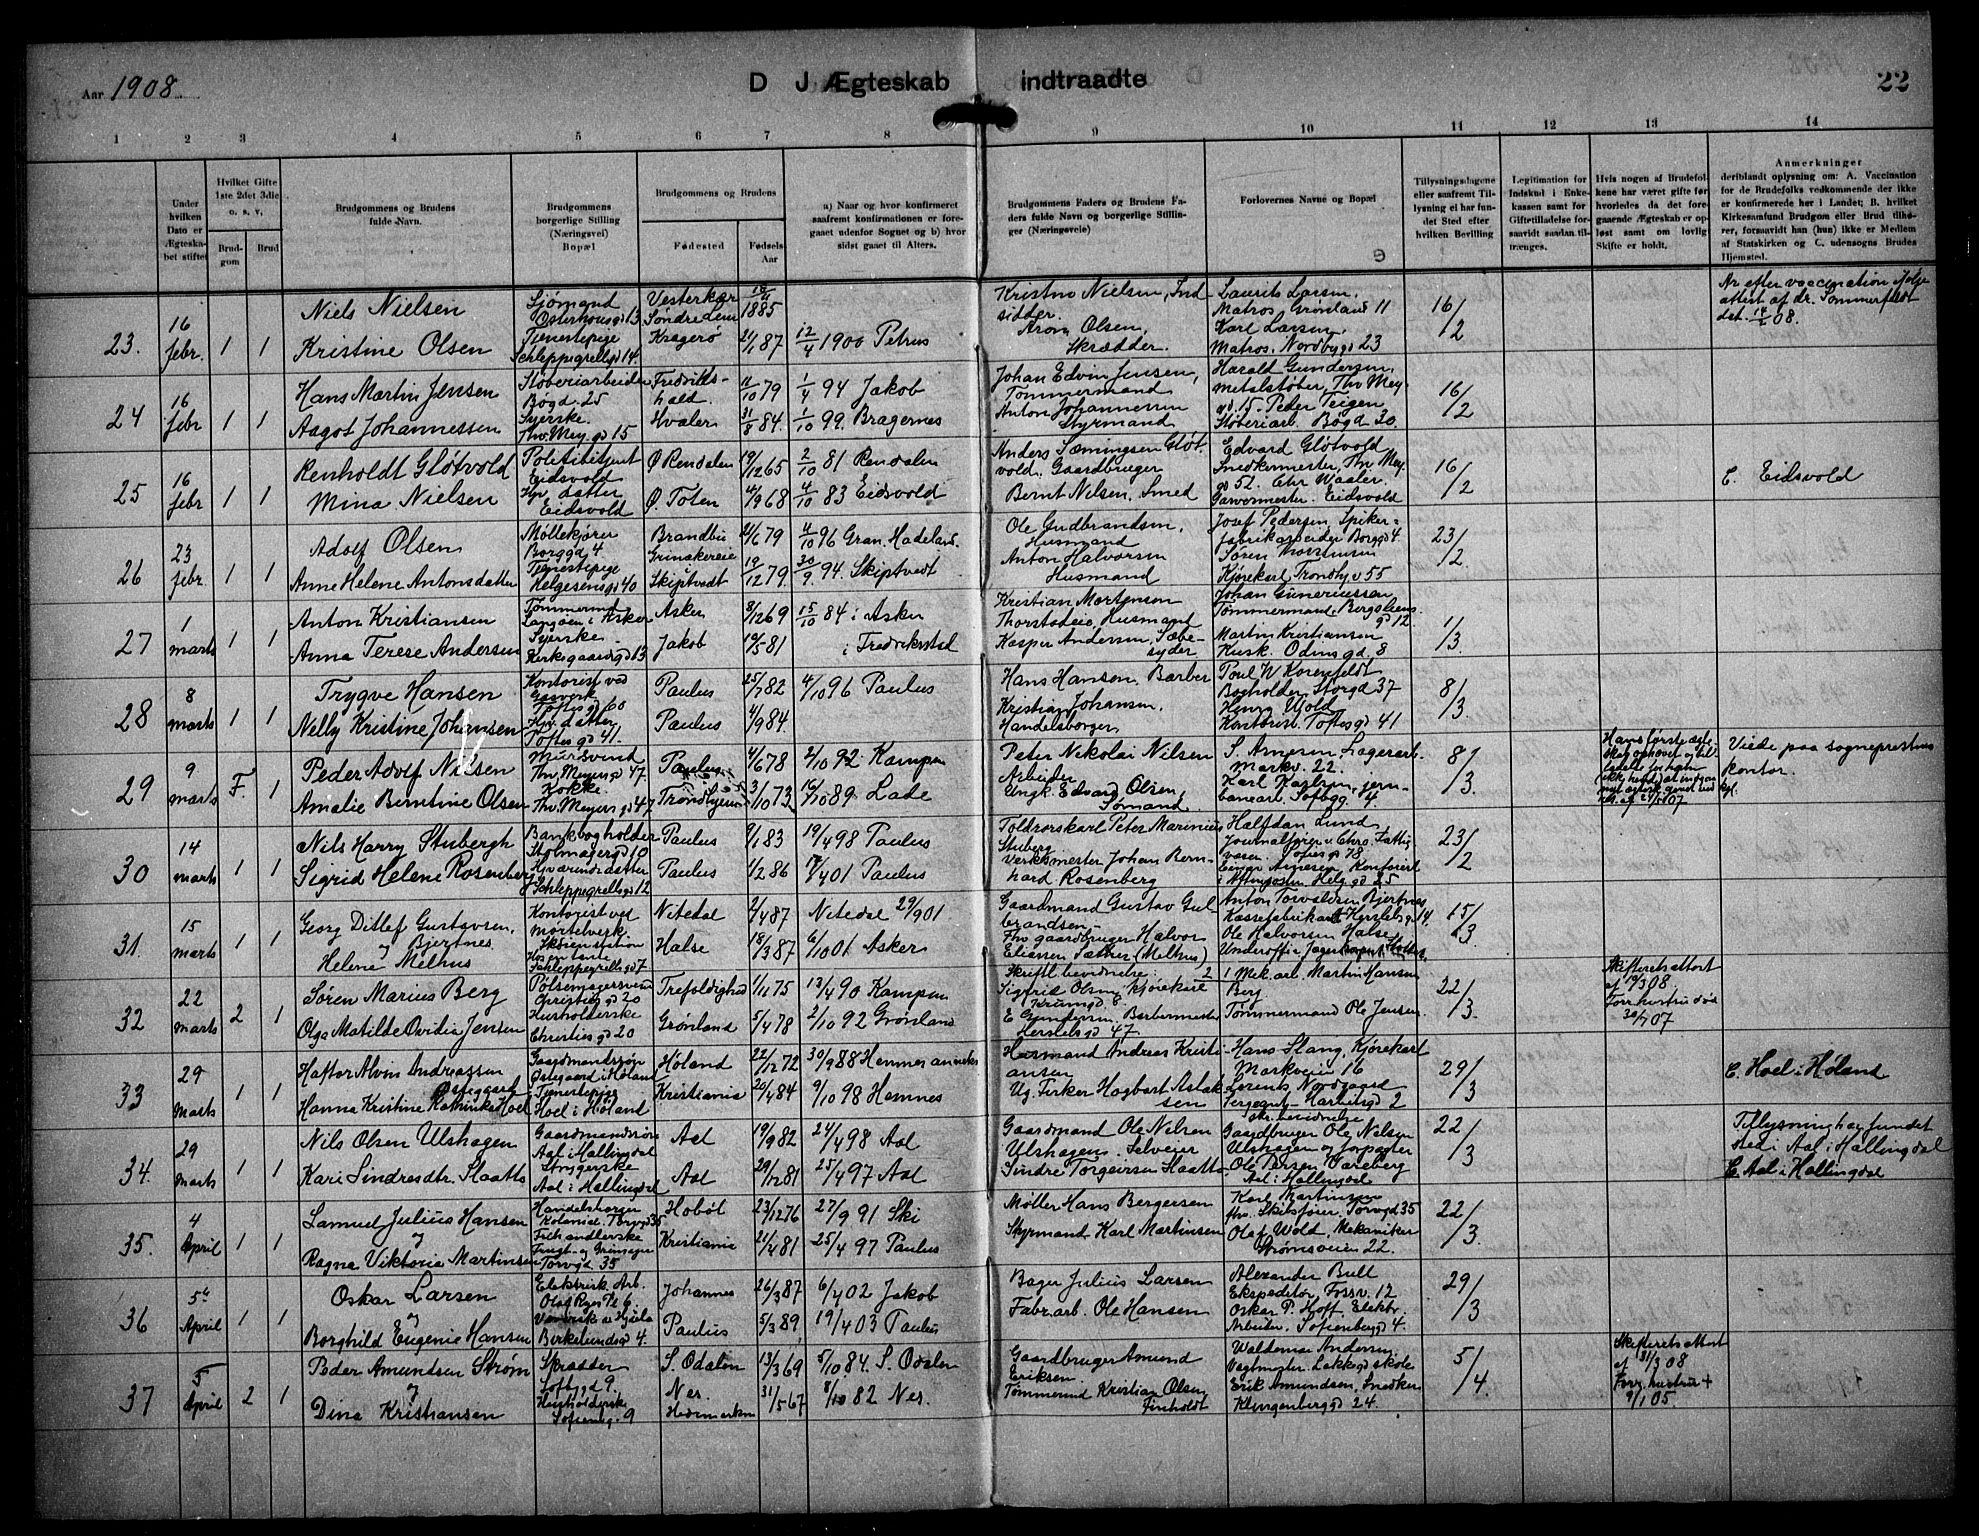 Aar 1908.
D J Ægteskab indtraadte
22
1 2 3 4 5 6 7 8 9 10 11 12 13 14
Under hvilken Dato er Ægteskabet stiftet
Hvilket Gifte 1ste 2det 3die o. s. v,
Brudgom
Brud
Brudgommens og Brudens fulde Navn.
Brudgommens borgerlige Stilling (Næringsvei) Bopæl
Brudgommens og Brudens
Fødested
Fødsels Aar
a) Naar og hvor konfirmeret saafremt konfirmationen er foregaaet udenfor Sognet og b) hvor sidst gaaet til Alters.
Brudgommens Faders og Brudens Faders fulde Navn og borgerlige Stillinger (Næringsveie)
Forlovernes Navne og Bopæl
Tillysningsdagene eller saafremt Tillysning ei har fundet Sted efter hvilken Bevilling
Legitimation for Indskud i Enkekassen samt for Giftetilladelse forsaavidt saadan tiltrænges.
Hvis nogen af Brudefolkene har været gifte før hvorledes da det foregaaende Ægteskab er opløst samt om lovlig Skifte er holdt.
Anmerkninger
deriblandt oplysning om: A. Vaccination for de Brudefolks vedkommende der ikke er konfirmerede her i Landet; B. hvilket Kirkesamfund Brudgom eller Brud tilhører, forsaavidt han (hun) ikke er Medlem af Statskirken og C. udensogns Brudes Hjemsted.
23. 16 febr. 1 1
Niels Nielsen Sjömand Osterhausgd 13 Vesterkær Söndre 1885
Kristine Olsen Tjenestepige Schleppegrellsgd 14 Kragerø 21/1 87 12/4 1900 Petrus
Kristno Nielsen, Indsidder.
Aron Olsen, Skrædder.
Laurits Larsen, Matros Grönland 11
Karl Larsen, Matros, Nordbygd 23
16/2
Ar efter vaccination ifølge attest af dr. Sommerfeldt dat. 08.
24 16 febr 1 1
Hans Martin Jensen Støberiarbeider Bøgd. 25 Fredrikshald. 11/10 79 1/4 94 Jakob
Aagot Johannessen Syerske. Thv. Mey. gd 15 Hvaler 31/8 84. 1/10 99. Bragernes
Johan Edvin Jensen, Tømmermand
Anton Johannessen Styrmand
Harald Gundersen, metalstøber, Thv Mey gd. 15. Peder Teigen Støberiarb. Bøgd 30.
16/2
25 16 febr 1 1
Renholdt Gløtvold Politibetjent Eidsvold Ø Rendalen 19/12 65 2/10 81 Rendalen
Mina Nielsen Hjv. datter Eidsvold Ø. Toten 4/9 68 4/10 83 Eidsvold
Anders Sæmingsen Gløtvold. Gaardbruger
Bernt Nelsen, Smed
Edvard Gløtvold Snedkermester, Thv Mey. gd 52. Chr Waaler, Garvermester. Eidsvold
16/2
C. Eidsvold
26 23 febr. 1 1
Adolf Olsen Møllekjører Borggd 4 Brandbu 21/6 79 4/10 96 Gran. Hadeland.
Anne Helene Antonsdatter Tjenestepige Helgesensgd 40 Skiptvedt 19/12 79. 30/9 94. Skiptvedt
Ole Gudbrandsen, Husmand
Anton Halvorsen Husmand
Josef Pedersen, Spikerfabrikarbeider Borggd 4
Søren Thorstensen Kjørekarl Trondhj.v 55
23/2
27 1 marts 1 1
Anton Kristiansen Tømmermd Langøen i Asker Asker 8/12 69 15/10 84 i Asker
Anna Terese Andersen Syerske Kirkegaardsgd 13 Jakob 19/5 81 i Fredrikstad
Kristian Mortenson Thorstadeie, Husmand
Kasper Andersen, Sæbesyder
Johan Guneriussen Tømmermand, Bergsliens gd 12
Martin Kristiansen Kusk. Odinsgd. 8
1/3
28 8 marts 1 1
Trygve Hansen Kontorist ved Gasverk Toftesgd 60 Paulus 25/7 82 4/10 96 Paulus
Nelly Kristine Johansen Hjv. datter Toftesgd 41. Paulus 4/9 84.
Hans Hanson, Barber
Kristian Johansen, Handelsborger.
Poul W Korenfeldt Bogholder, Storgd 37
Henry Wold Kontorist. Toftesgd 41
8/3
29 9 marts F 1
Peder Adolf Nilsen Murersvend Thv. Meyersgd 47 Paulus 4/6 78 2/10 92 Kampen
Amalie Berntine Olsen Kokke Thv. Meyersgd 47 Trondhjem 3/10 73 16/10 89. Lade
Peter Nikolai Nilsen Arbeider
Ungk. Edvard Olsen, Sømand.
S. Arnesen Lagerarb. Markv. 22.
Karl Karlsen, jernbanearb. Toftbgg. 4
8/3.
Viede paa sogneprestens kontor.
30 14 marts 1 1
Nils Harry Stubergh Bankbogholder Stolmagergd 10 Paulus 9/1 83 19/4 98 Paulus
Sigrid Helene Rosenberg Hjvarende datter Schleppegrellsgd 12 Paulus 1/2 86 4 01 Paulus
Toldrorskarl Peter Marinius Stuberg.
Verksmester Johan Bernhard Rosenberg
Halfdan Lund Journalfører v Chra Fattigvæsen. Tofesgd 78
Einar Agnesen Kontorist i Aftenposten Helg. gd 25
23/2
31. 15 marts 1 1
Georg Ditlef Gustavsen, Bjertnes Kontorist ved Mortelverk Skøienstation Nitedal 2/4 87 Nitedal 29/9 01
og
Helene Melhus Hos en tante Schleppegrellsgd 7 Halse 18/3 87 6/10 01 Asker
Gaardmand Gustav Gulbrandsen
Fhv gaardbruger Halvor Eliassen Sæther (Melhus)
Anton Torvaldsen Bjertnes Kassefabrikant Herslebsgd. 14.
Ole Halvorsen Halse Underoff. i Jagerkorpset
15/3.
32 22 marts 2 1
Søren Marius Berg Pølsemagersvend Christiesgd 20 Trefoldighed 1/11 75 13/4 90 Kampen
Olga Matilde Ovidia Jensen Husholderske Christiesgd 20 Grønland 5/4 78 2/10 92 Grønland
Skriftl. bevidnelse:
Sigfrid Olsen, kjørekarl
E Gundersen, Barbermester Herslebsgd 47.
1 Mek. arb. Martin Hansen Berg
2 Tømmermand Ole Jensen.
22/3.
Skifterets attest af 19/3 08. Forr. hustru død 30/1 07
33 29 Marts 1 1
Haftor Alvin Andreassen Østegaard Gaardmandssøn Østegaard i Høland Høland 22/12 72 30/9 88 Hemnes anneks
Hanna Kristine Kathinka Hoel Tjenestepige Hoel i Høland Kristiania 20/4 84 9/10 98 Hemnes
Husmand Andreas Kristiansen
Ug. Firker Hagbart Aslaksen
Hans Stang, Kjørekarl Markveien 16
Lorents Nordgaard Sergeant - Maribosgd 2
29/3
C. Hoel i Høland
34. 29 Marts 1 1
Nils Olsen Ulshagen Gaardmandssøn Aal i Hallingdal Aal 19/9 82 24/4 98 Aal
Kari Sindresdtr. Slaatto Strygerske Aal i Hallingdal Aal 29/12 81 25/4 97 Aal
Gaardmand Ole Nilsen Ulshagen. Selveier
Sindre Torgeirsen Slaatto
skr. bevidnelse
Gaardbruger Ole Nelsen Ulshagen og forpagter Ole Persen Vareberg Aal i Hallingdal
22/3
Tillysning har fundet sted i Aal i Hallingdal
C. Aal i Hallingdal
35. 4 April 1 1
Samuel Julius Hansen Handelsborger Kolonial. Torvgd 35 Hobøl 23/12 76 27/9 91 Ski
og
Ragna Viktoria Martinsen Torvgd 35 Kristiania 21/4 81 25/4 97 Paulus
Møller Hans Bergersen
Styrmand Karl Martinsen
Karl Martinsen fhv. Skibsfører, Torvgd 35
Olaf Wold, Mekaniker Strømsveien 22.
22/3.
36 5te April 1 1
Oskar Larsen Elektrisk Arb. Olaf Ryes Pl 6 Johannes 26/3 87 6/4 02 Jakob
og
Borghild Eugenie Hansen Birkelundsgd 4. Paulus 5/3 89, 19/4 03 Paulus
Bager Julius Larsen
Fabr. arb. Ole Hansen
Alexander Bull Ekspeditør, Fossv. 12
Oskar P. Hoff, Elektr. Arbeider, Sofienberggd 4.
29/3
37 5 April 2 1
Peder Amundsen Strøm Skrædder Sofbgd 9. S. Odalen 13/3 69 5/10 84. S. Odalen
og
Dina Kristiansen Husholderske Sofienbg. 9 Nes. Hedemarken 31/5 67 8/10 82 Nes.
Gaardbruger Amund Eriksen.
Tømmermd Kristian Olsen, Finholdt
Waldemar Andersen, Vagtmester. Lakkegd skole
Erik Amundsen, Snedker Klingenberggd 24.
5/4.
Skifterets attest af 31/3 08 Forr. hustru + 9/1 05.